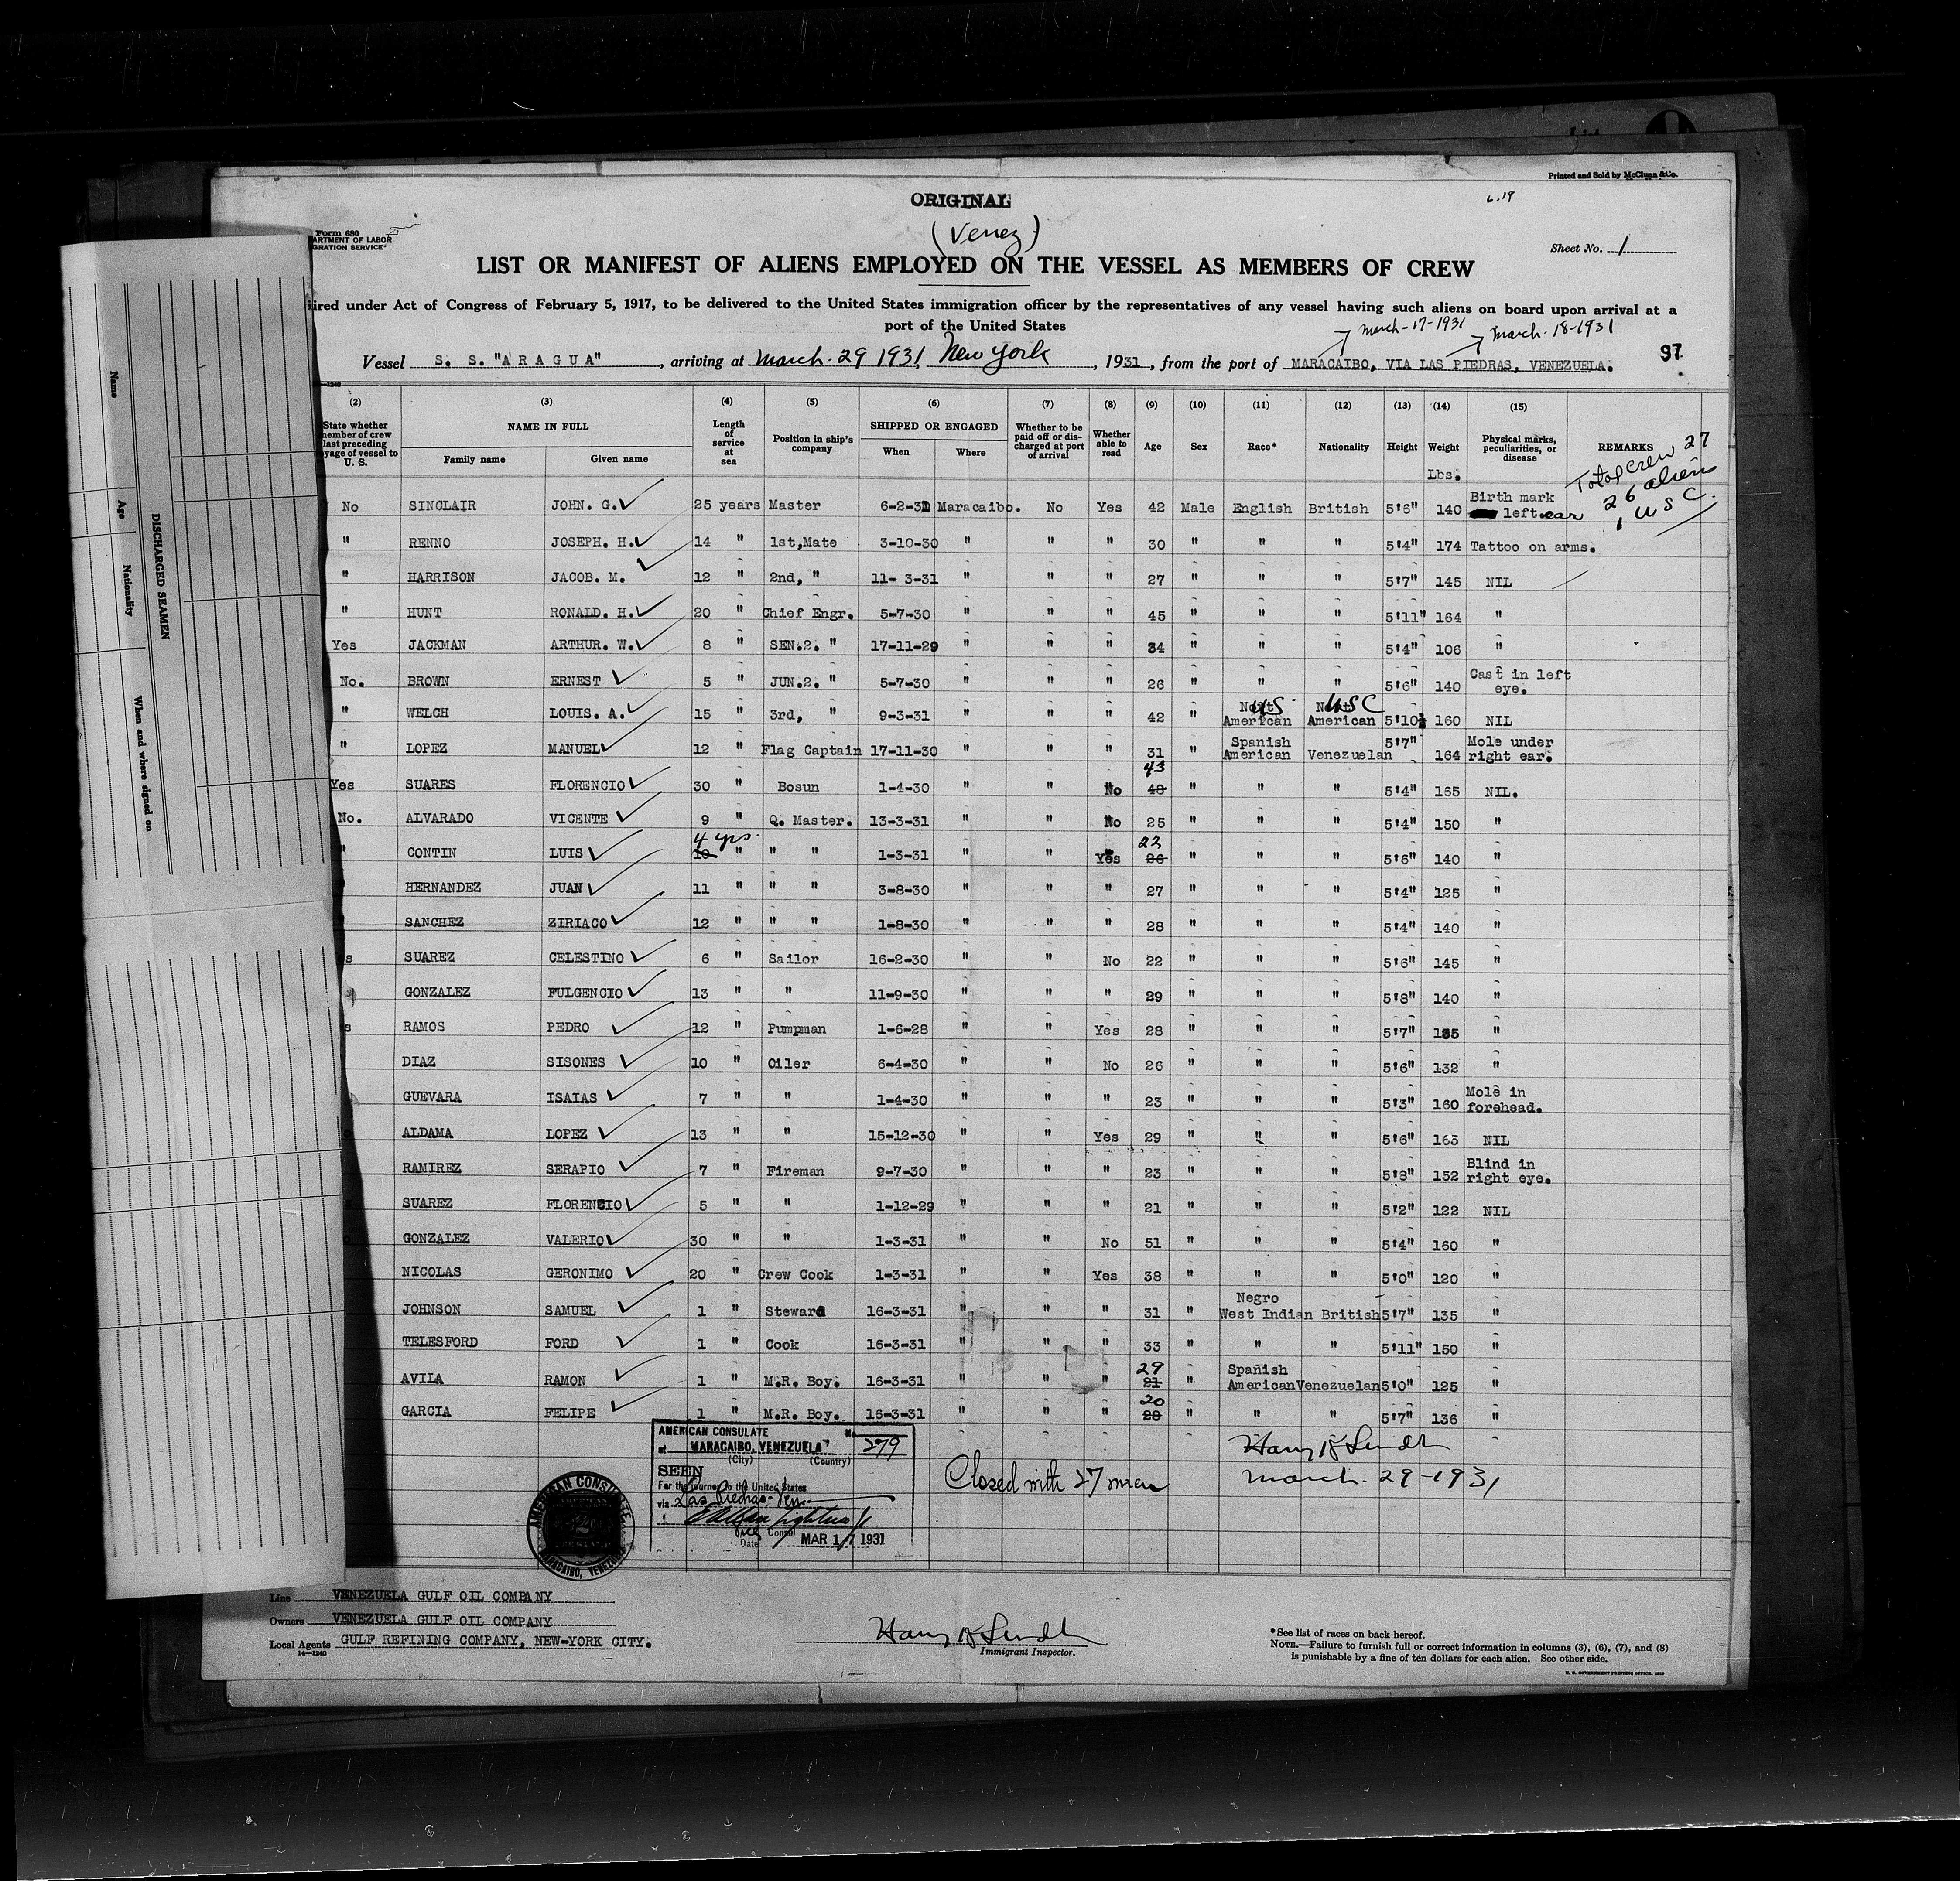 Printed and Sold by McClunn & Co.
ORIGINAL
6.19
(Venez)
Form 680
ARTMENT OF LABOR
GRATION SERVICE
Sheet No. 1
LIST OR MANIFEST OF ALIENS EMPLOYED ON THE VESSEL AS MEMBERS OF CREW
ired under Act of Congress of February 5, 1917, to be delivered to the United States immigration officer by the representatives of any vessel having such aliens on board upon arrival at a
port of the United States
March-17-1931 March-18-1931
Vessel S. S. "ARAGUA", arriving at March. 29 1931, New York, 1931, from the port of MARACAIBO, VIA LAS PIEDRAS, VENEZUELA. 97
(2) (3) (4) (5) (6) (7) (8) (9) (10) (11) (12) (13) (14) (15)
State whether member of crew last preceding yage of vessel to U. S. NAME IN FULL Family name Given name Length of service at sea Position in ship's company SHIPPED OR ENGAGED When Where Whether to be paid off or discharged at port of arrival Whether able to read Age Sex Race* Nationality Height Weight Lbs. Physical marks, peculiarities, or disease REMARKS
Total crew 27
26 aliens
1 USC
No SINCLAIR JOHN. G. 25 years Master 6-2-31 Maracaibo. No Yes 42 Male English British 5'6" 140 Birth mark left ear
" RENNO JOSEPH. H. 14 " 1st,Mate 3-10-30 " " " 30 " " " 5'4" 174 Tattoo on arms.
" HARRISON JACOB. M. 12 " 2nd, " 11- 3-31 " " " 27 " " " 5'7" 145 NIL
" HUNT RONALD. H. 20 " Chief Engr. 5-7-30 " " " 45 " " " 5'11" 164 "
Yes JACKMAN ARTHUR. W. 8 " SEN.2. " 17-11-29 " " " 34 " " " 5'4" 106 "
No. BROWN ERNEST 5 " JUN.2. " 5-7-30 " " " 26 " " " 5'6" 140 Cast in left eye.
" WELCH LOUIS. A. 15 " 3rd, " 9-3-31 " " " 42 " US American USC American 5'10½ 160 NIL
" LOPEZ MANUEL 12 " Flag Captain 17-11-30 " " " 31 " Spanish American Venezuelan 5'7" 164 Mole under right ear.
Yes SUARES FLORENCIO 30 " Bosun 1-4-30 " " No 43 48 " " " 5'4" 165 NIL.
No. ALVARADO VICENTE 9 " Q. Master. 13-3-31 " " No 25 " " " 5'4" 150 "
" CONTIN LUIS 4 yrs. 10 " " " 1-3-31 " " Yes 22 26 " " " 5'6" 140 "
HERNANDEZ JUAN 11 " " " 3-8-30 " " " 27 " " " 5'4" 125 "
SANCHEZ ZIRIACO 12 " " " 1-8-30 " " " 28 " " " 5'4" 140 "
s SUAREZ CELESTINO 6 " Sailor 16-2-30 " " No 22 " " " 5'6" 145 "
GONZALEZ FULGENCIO 13 " " 11-9-30 " " " 29 " " " 5'8" 140 "
s RAMOS PEDRO 12 " Pumpman 1-6-28 " " Yes 28 " " " 5'7" 135 "
DIAZ SISONES 10 " Oiler 6-4-30 " " No 26 " " " 5'6" 132 "
GUEVARA ISAIAS 7 " " 1-4-30 " " " 23 " " " 5'3" 160 Mole in forehead.
ALDAMA LOPEZ 13 " " 15-12-30 " " Yes 29 " " " 5'6" 163 NIL
RAMIREZ SERAPIO 7 " Fireman 9-7-30 " " " 23 " " " 5'8" 152 Blind in right eye.
SUAREZ FLORENCIO 5 " " 1-12-29 " " " 21 " " " 5'2" 122 NIL
GONZALEZ VALERIO 30 " " 1-3-31 " " No 51 " " " 5'4" 160 "
NICOLAS GERONIMO 20 " Crew Cook 1-3-31 " " Yes 38 " " " 5'0" 120 "
JOHNSON SAMUEL 1 " Steward 16-3-31 " " " 31 " Negro West Indian British 5'7" 135 "
TELESFORD FORD 1 " Cook 16-3-31 " " " 33 " " " 5'11" 150 "
AVILA RAMON 1 " M.R. Boy. 16-3-31 " " " 29 21 " Spanish American Venezuelan 5'0" 125 "
GARCIA FELIPE 1 " M.R. Boy. 16-3-31 " " " 20 28 " " " 5'7" 136 "
AMERICAN CONSULATE No. 279
at MARACAIBO, VENEZUELA
(City) (Country)
SEEN
For the journey to the United States
via Las Piedras. Ven
Consul
Date MAR 17 1931
AMERICAN CONSULATE
MARACAIBO, VENEZUELA
Closed with 27 men
March. 29-1931
Line VENEZUELA GULF OIL COMPANY
Owners VENEZUELA GULF OIL COMPANY
Local Agents GULF REFINING COMPANY, NEW-YORK CITY.
14-1240
Immigrant Inspector.
*See list of races on back hereof.
NOTE.—Failure to furnish full or correct information in columns (3), (6), (7), and (8)
is punishable by a fine of ten dollars for each alien. See other side.
U. S. GOVERNMENT PRINTING OFFICE
DISCHARGED SEAMEN
Name
Age
Nationality
When and where signed on